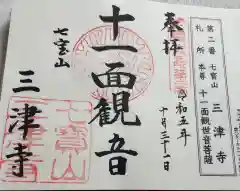 第二番 七宝山 三津寺
札所 本尊 十一面観世音菩薩
奉拝
令和五年
十月三十一日
十一面観音
七宝山
三津寺
七寳山